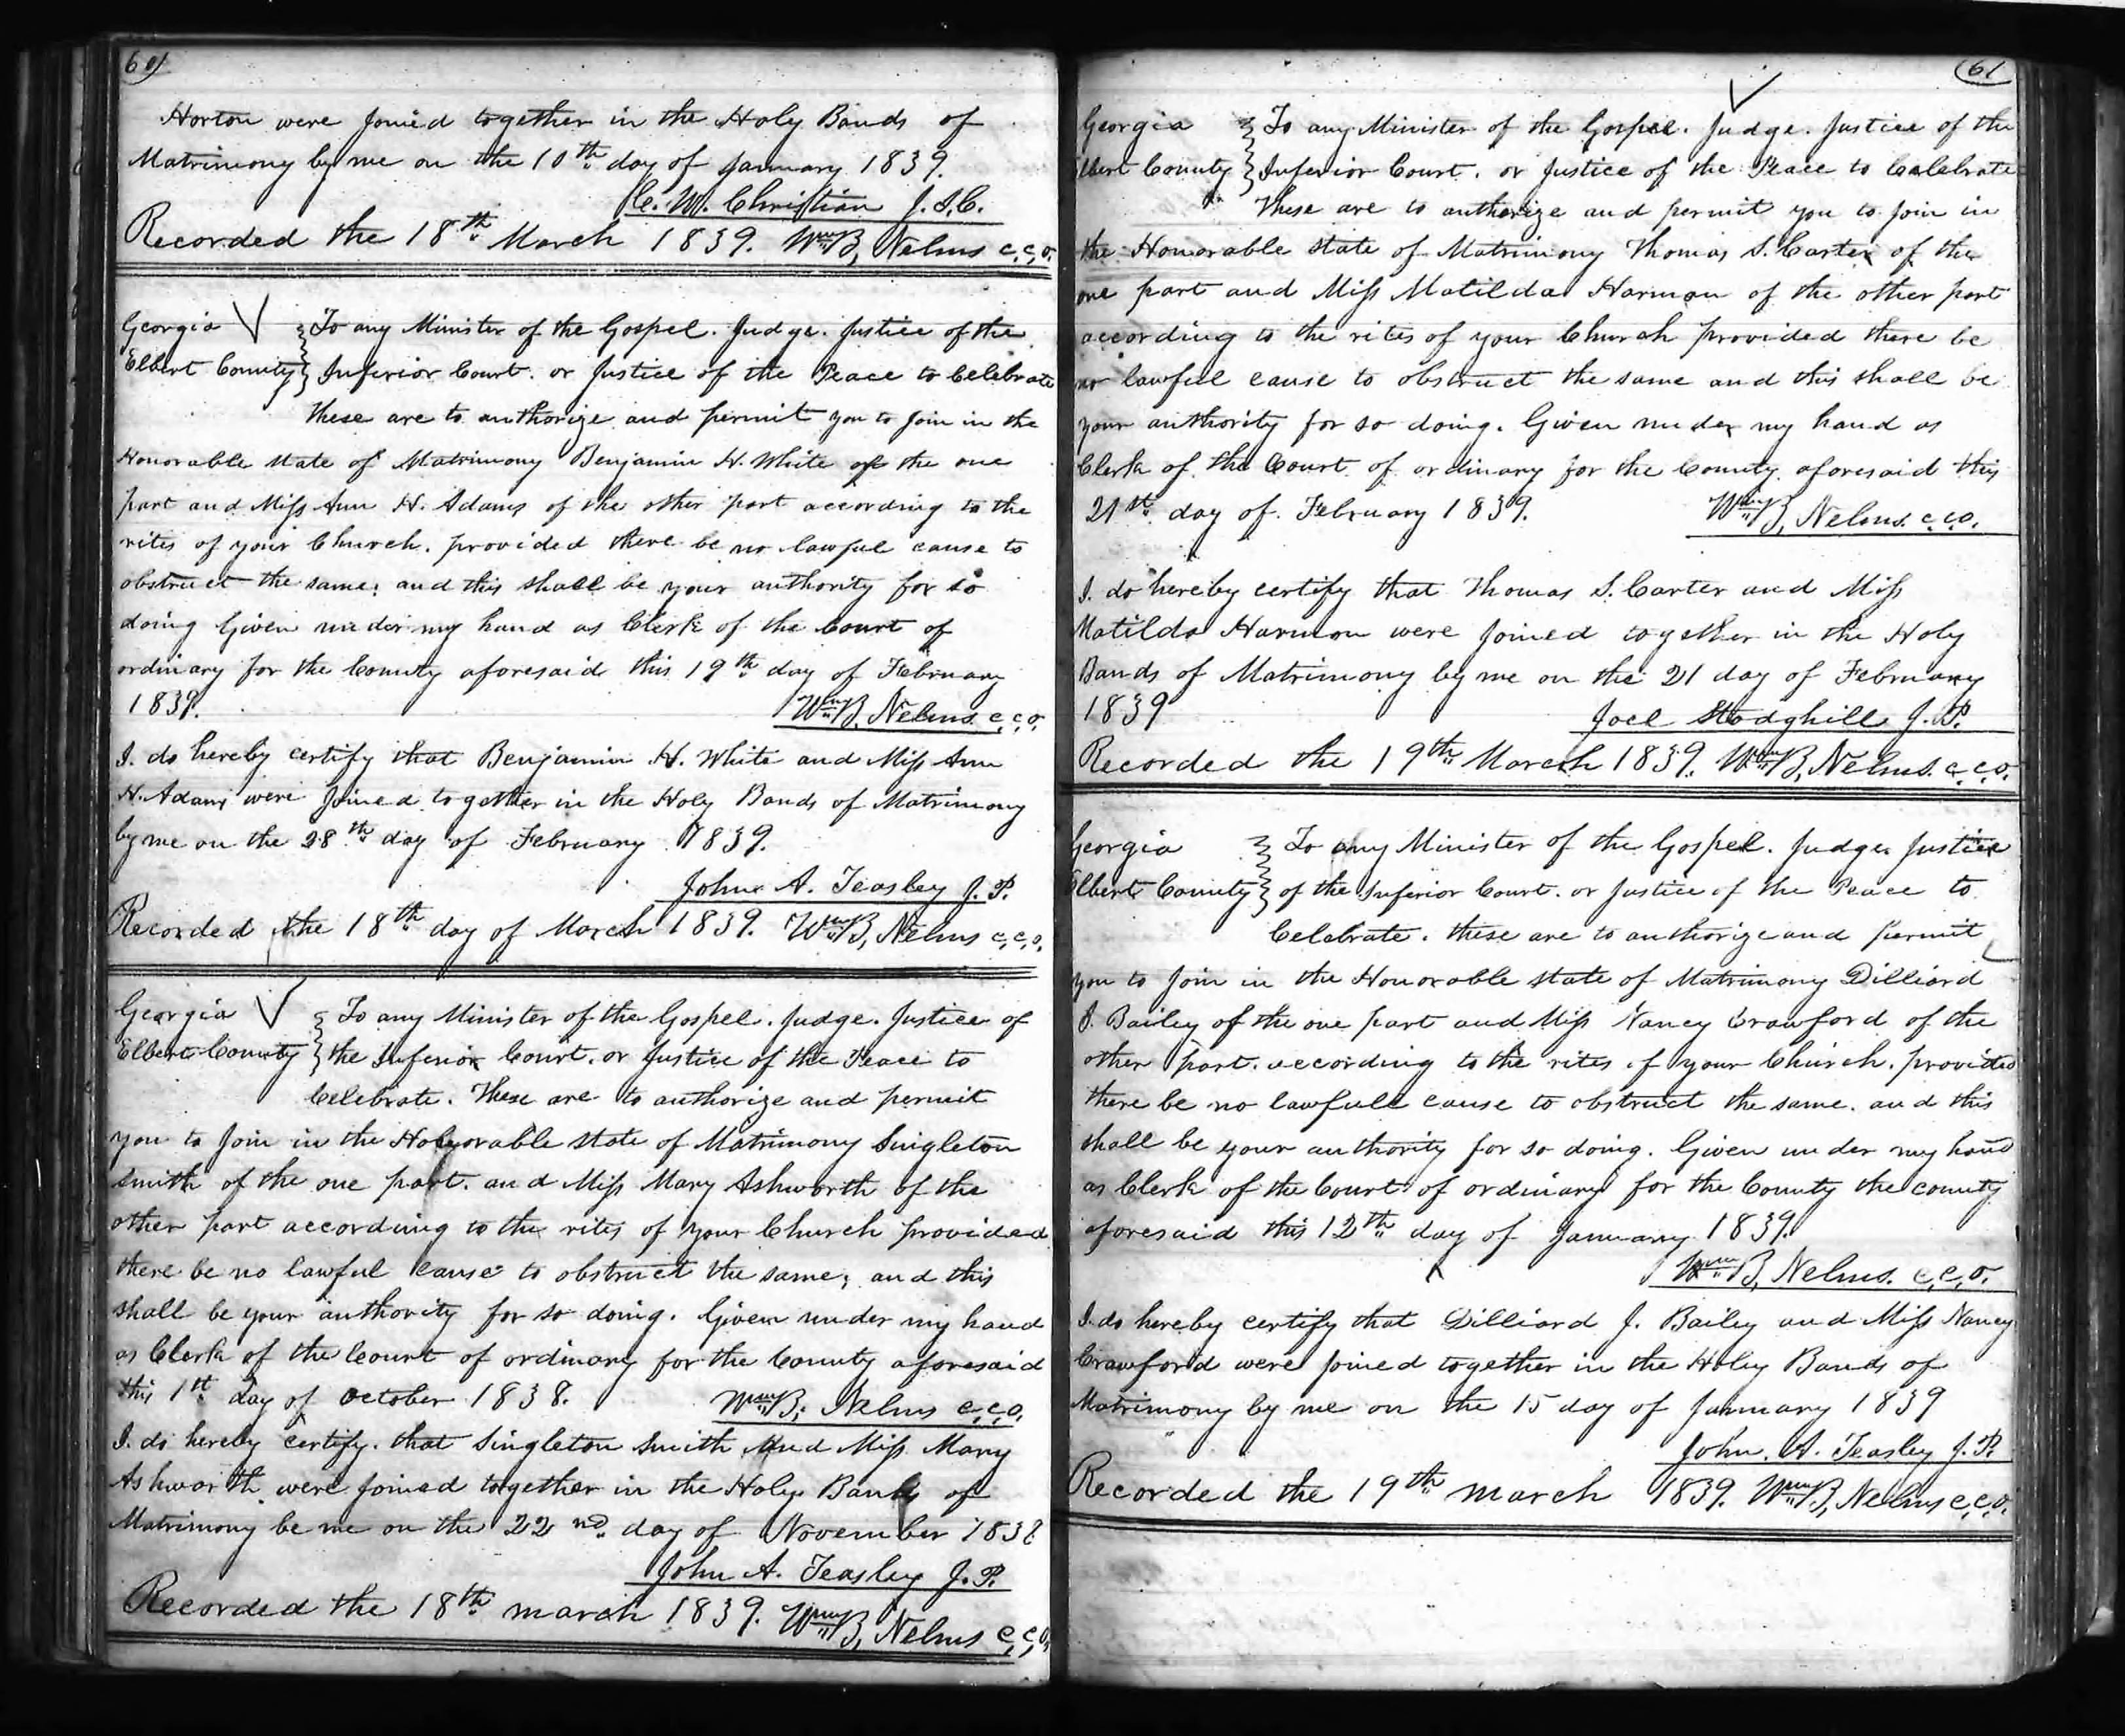 60
Horton were Joined together in the Holy Bands of
Matrimony by me on the 10th day of January 1839.
C. W. Christian J.I.C.
Recorded the 18th March 1839. Wm B, Nelms c,c,o.
Georgia To any Minister of the Gospel. Judge. Justice of the
Elbert County Inferior Court. or Justice of the Peace to Celebrate
These are to authorize and permit you to Join in the
Honorable state of Matrimony Benjamin H. White of the one
part and Miss Ann H. Adams of the other part according to the
rites of your Church. provided there be no lawful cause to
obstruct the same; and this shall be your authority for so
doing Given under my hand as Clerk of the Court of
ordinary for the County aforesaid this 19th day of February
1839. Wm B, Nelms. c,c,o.
I. do hereby certify that Benjamin H. White and Miss Ann
H. Adams were Joined together in the Holy Bands of Matrimony
by me on the 28th day of February 1839.
John A. Teasley J.P.
Recorded the 18th day of March 1839. Wm B, Nelms c,c,o.
Georgia To any Minister of the Gospel. Judge. Justice of
Elbert County the Inferior Court. or Justice of the Peace to
Celebrate. These are to authorize and permit
you to Join in the Honorable state of Matrimony Singleton
Smith of the one part. and Miss Mary Ashworth of the
other part according to the rites of your Church provided
there be no lawful cause to obstruct the same; and this
shall be your authority for so doing. Given under my hand
as Clerk of the Court of ordinary for the County aforesaid
this 1st day of October 1838. Wm B, Nelms c,c,o.
I. do hereby certify. that Singleton Smith and Miss Mary
Ashworth were Joined together in the Holy Bands of
Matrimony be me on the 22nd day of November 1838
John A. Teasley J.P.
Recorded the 18th march 1839. Wm B, Nelms c,c,o,
61
Georgia To any Minister of the Gospel. Judge. Justice of the
Elbert County Inferior Court. or Justice of the Peace to Celebrate
These are to authorize and permit you to Join in
the Honorable state of Matrimony Thomas S. Carter of the
one part and Miss Matilda Harmon of the other part
according to the rites of your Church provided there be
no lawfull cause to obstruct the same and this shall be
your authority for so doing. Given under my hand as
Clerk of the Court of ordinary for the County aforesaid this
21st day of February 1839. Wm B, Nelms. c,c,o.
I. do hereby certify that Thomas S. Carter and Miss
Matilda Harmon were Joined together in the Holy
Bands of Matrimony by me on the 21 day of February
1839 Joel Stodghill J.P.
Recorded the 19th March 1839. Wm B, Nelms. c,c,o.
Georgia To any Minister of the Gospel. Judge Justice
Elbert County of the Inferior Court. or Justice of the Peace to
Celebrate. these are to authorize and permit
you to Join in the Honorable state of Matrimony Dilliard
J. Bailey of the one part and Miss Nancy Crawford of the
other part. according to the rites of your Church. provided
there be no lawfull cause to obstruct the same. and this
shall be your authority for so doing. Given under my hand
as Clerk of the Court of ordinary for the County the county
aforesaid this 12th day of January 1839.
Wm B, Nelms. c,c,o.
I. do hereby certify that Dilliard J. Bailey and Miss Nancy
Crawford were Joined together in the Holy Bands of
Matrimony by me on the 15 day of January 1839
John. A. Teasley J.P.
Recorded the 19th march 1839. Wm B, Nelms c,c,o.